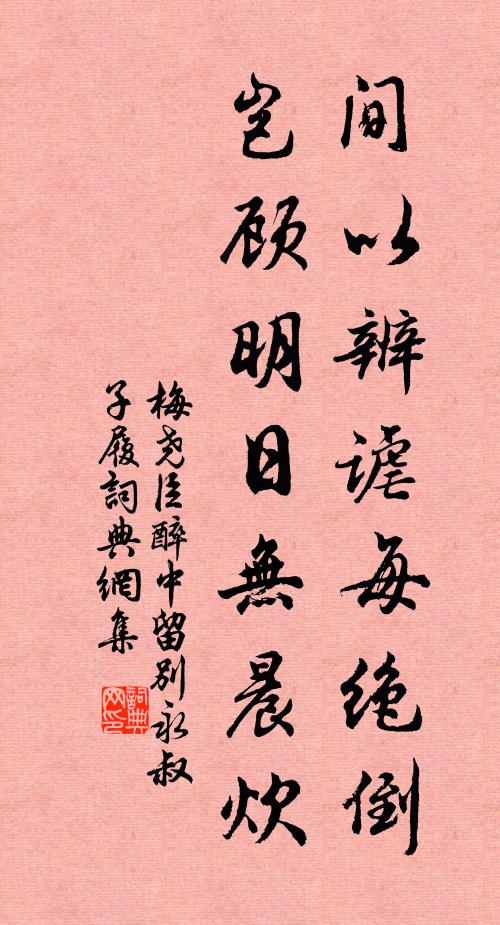 间以辨谑每绝倒
岂顾明日無晨炊
梅尧臣醉中留别永叔
子履詞典網集
詞典网印